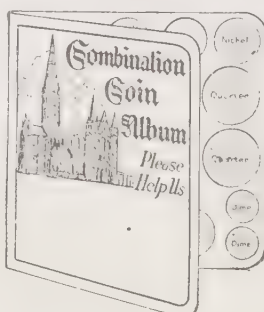 Combination
Coin
Album
Please
Help Us
Nickel
Quarter
Quarter
Dime
Dime